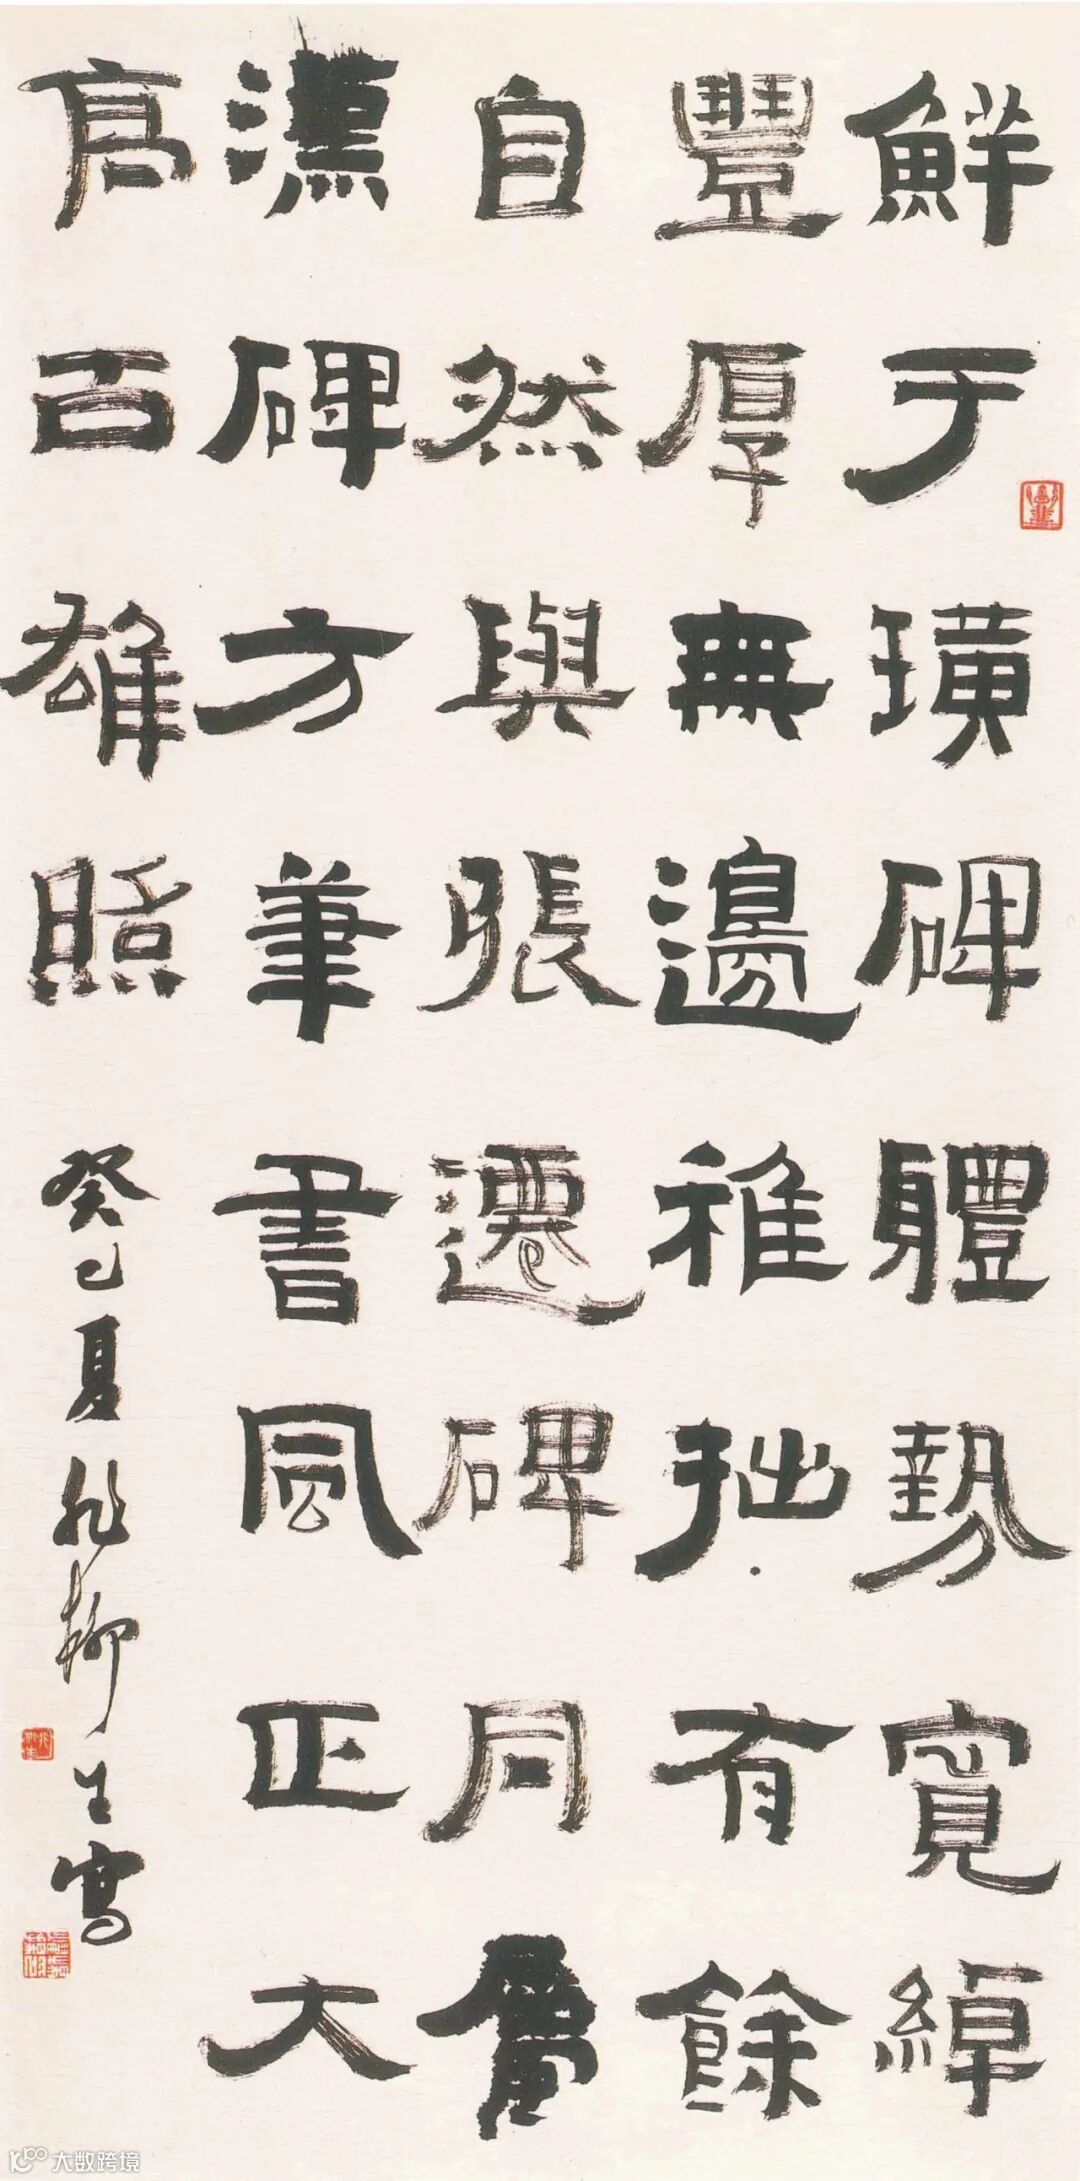 鮮于璜碑體勢寬綽
豐厚無邊稚拙有餘
自然與張遷碑同屬
漢碑方筆書風正大
高古雄照
癸巳夏柳生寫
大数跨境